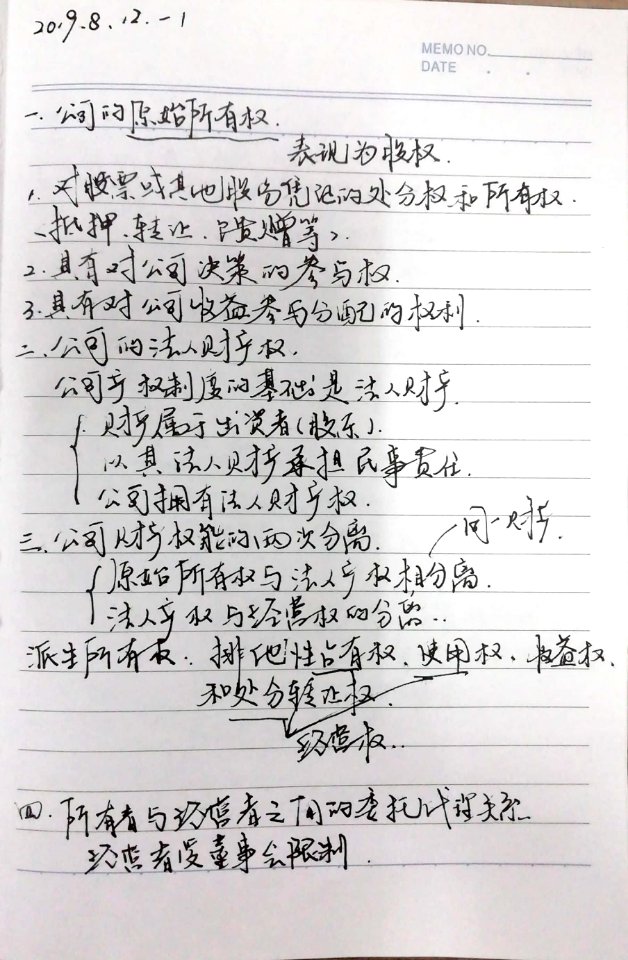 2019.8.12.-1
MEMO NO.
DATE . .
一.公司的原始所有权.
表现为股权.
1.对股票或其他股份凭记的处分权和所有权.
(抵押、转让、馈赠等).
2.具有对公司决策的参与权.
3.具有对公司收益参与分配的权利.
二.公司的法人财产权.
公司产权制度的基础是法人财产.
财产属于出资者(股东).
以其法人财产承担民事责任.
公司拥有法人财产权.
三.公司财产权能的两次分离.
同一财产.
原始所有权与法人产权相分离.
法人产权与经营权的分离..
派生所有权:排他性占有权、使用权、收益权.
和处分转让权.
经营权..
四.所有者与经营者之间的委托代理关系.
经营者受董事会限制.